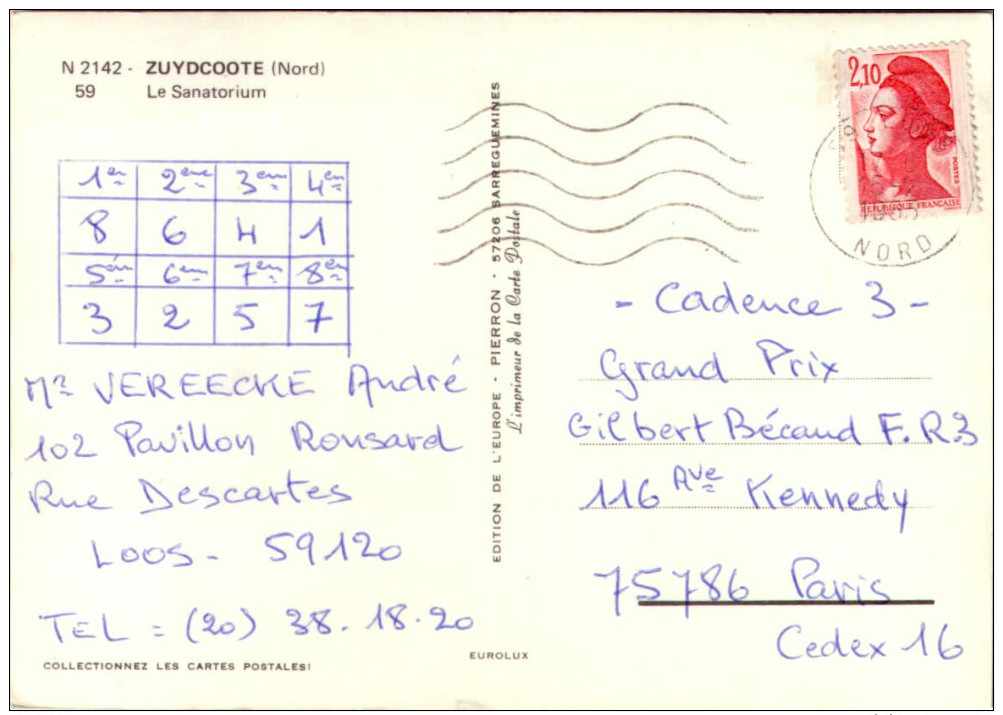 N 2142 - ZUYDCOOTE (Nord)
59 Le Sanatorium
1er 2eme 3em 4em
8 6 4 1
5em 6em 7em 8em
3 2 5 7
Mr VEREECKE André
102 Pavillon Ronsard
Rue Descartes
LOOS - 59120
TEL = (20) 38.18.20
COLLECTIONNEZ LES CARTES POSTALES!
EDITION DE L'EUROPE - PIERRON - 57206 SARREGUEMINES
L'imprimeur de la Carte Postale
EUROLUX
2,10
POSTES
REPUBLIQUE FRANÇAISE
NORD
- Cadence 3 -
Grand Prix
Gilbert Bécaud F.R.3
116 Ave Kennedy
75786 Paris
Cedex 16